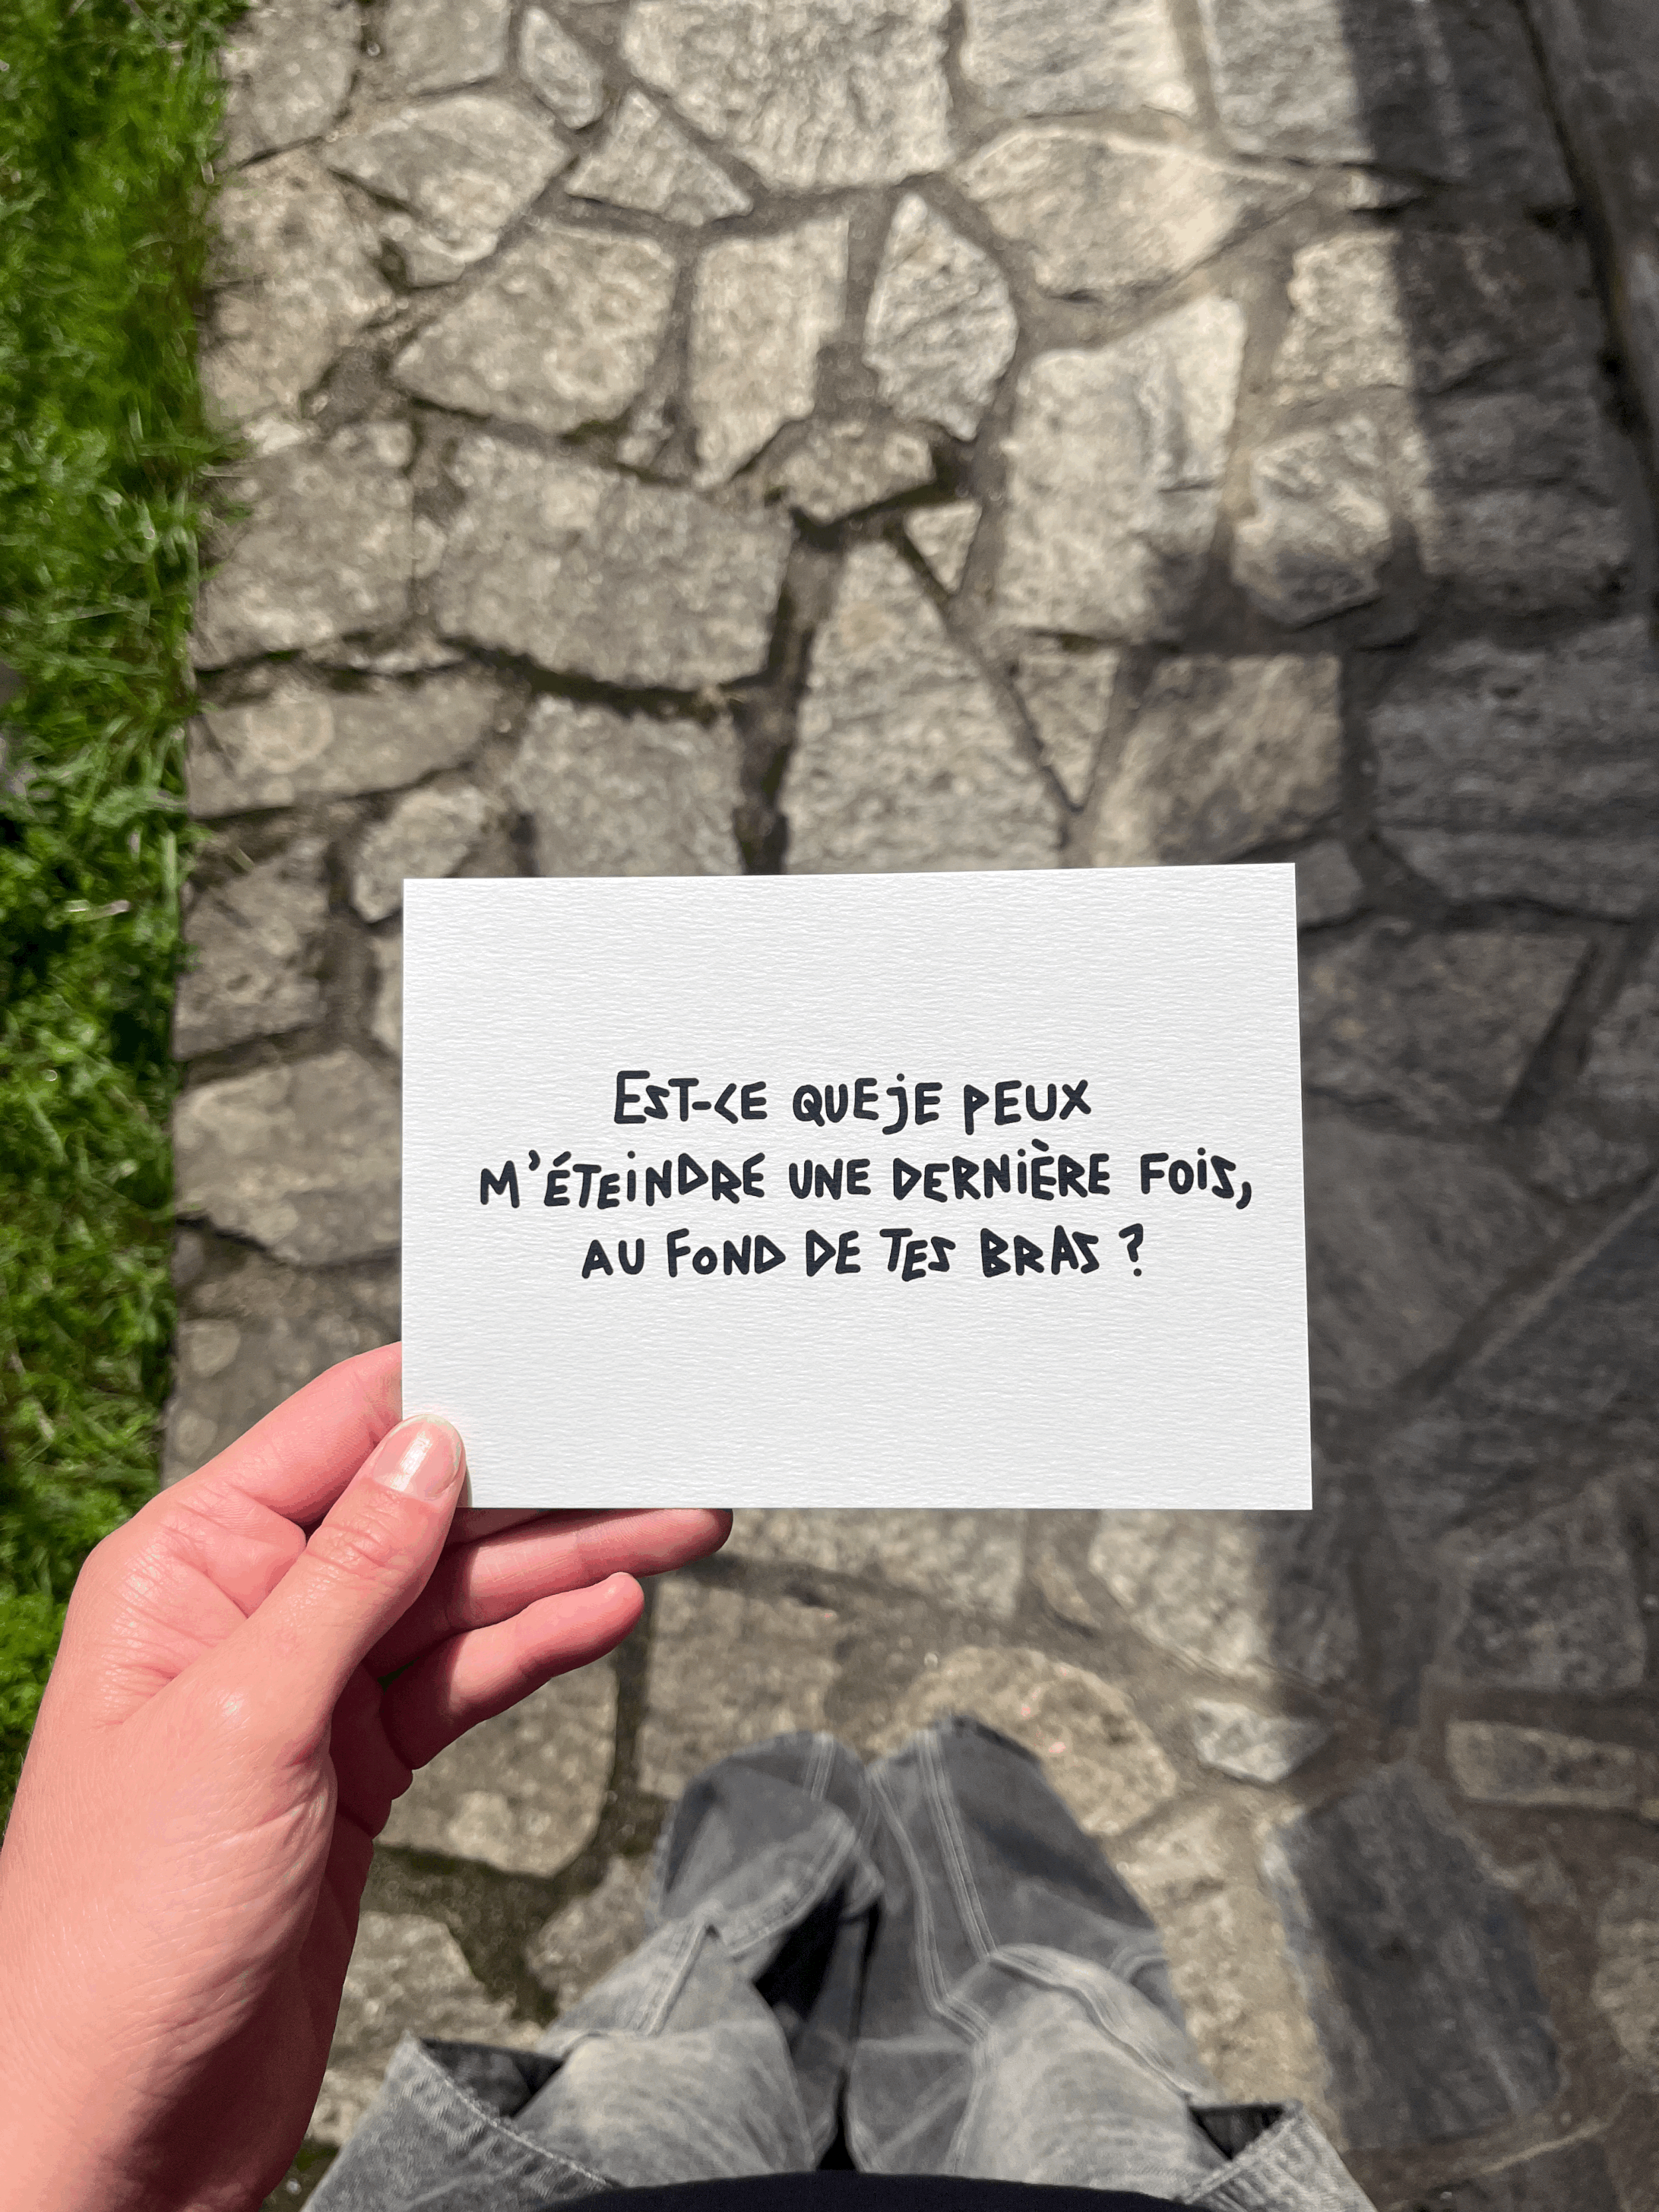 EST-CE QUE JE PEUX
M'ÉTEINDRE UNE DERNIÈRE FOIS,
AU FOND DE TES BRAS ?